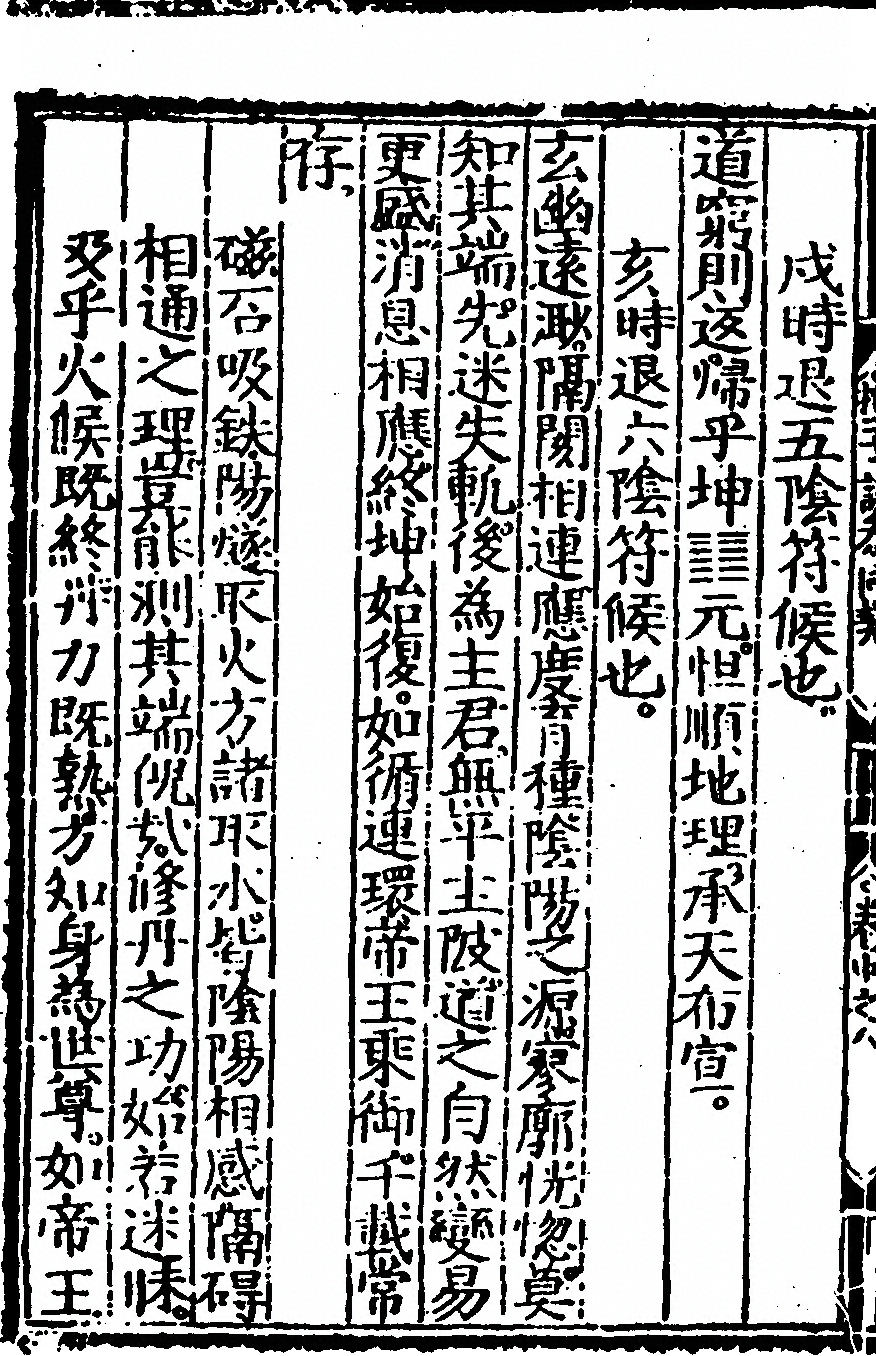 戌時退五陰符候也。
道窮則返。歸乎坤䷁元。恒順地理、承天布宣。
亥時退六陰符候也。
玄幽遠渺。隔閡相連。應度育種。陰陽之源。寥廓恍惚。莫
知其端。先迷失軌。後為主君。無平不陂。道之自然。變易
更盛。消息相應。終坤始復。如循連環。帝王乘御。千載常
存、
磁石吸鉄。陽燧取火。方諸取水。皆陰陽相感。隔碍
相通之理。豈能測其端倪哉。修丹之功。始若迷昧。
及乎火候既終。丹力既熟。方知身為世尊。如帝王